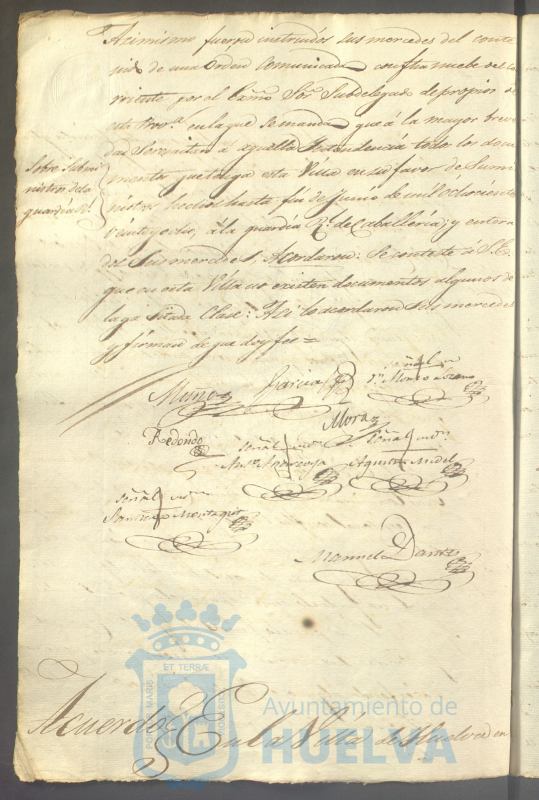 Asimismo fueron instruidos sus mercedes del conte
nido de una Orden Comunicada con fha nuebe del co
rriente por el Exmo Sor. Subdelegado de propios de
esta Prova. en la que se manda que á la mayor breve
dad se remitan á aquella dependencia todos los docu
mentos que haga esta Villa en su favor de Sumi
nistros hechos hasta fin de Junio de mil ochocientos
veinte y ocho, á la guardia Rl. de Caballeria; y entera
dos sus mercedes, Acordaron: Se conteste á S.E.
que en esta Villa no existen documentos algunos de
la citada Clase: Asi lo acordaron sus mercedes
y firman de que doy fee =
Sobre Submi
nistros de la
guardia Rl.
Muñoz
Garcia
Señal
Redondo
Mora
Señal
Señal
Agustin Midel
Señal
Santiago
Manuel
Acuerdo
En la Villa de Huelva en
PORTUS MARIS ET TERRÆ
Ayuntamiento de
HUELVA